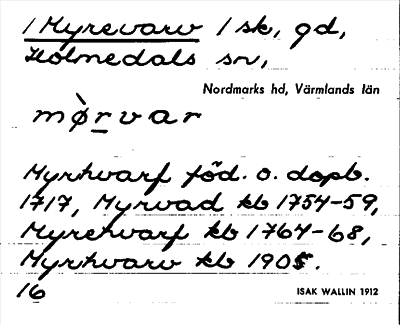 / Myrevarv / sk, gd,
Holmedals sn,
Nordmarks hd, Värmlands län
mø̀rvar
Myrhvarf föd. o. dopb.
1717, Myrvad kb 1754-59,
Myrehvarf kb 1764-68,
Myrhvarv kb 1905.
16
ISAK WALLIN 1912